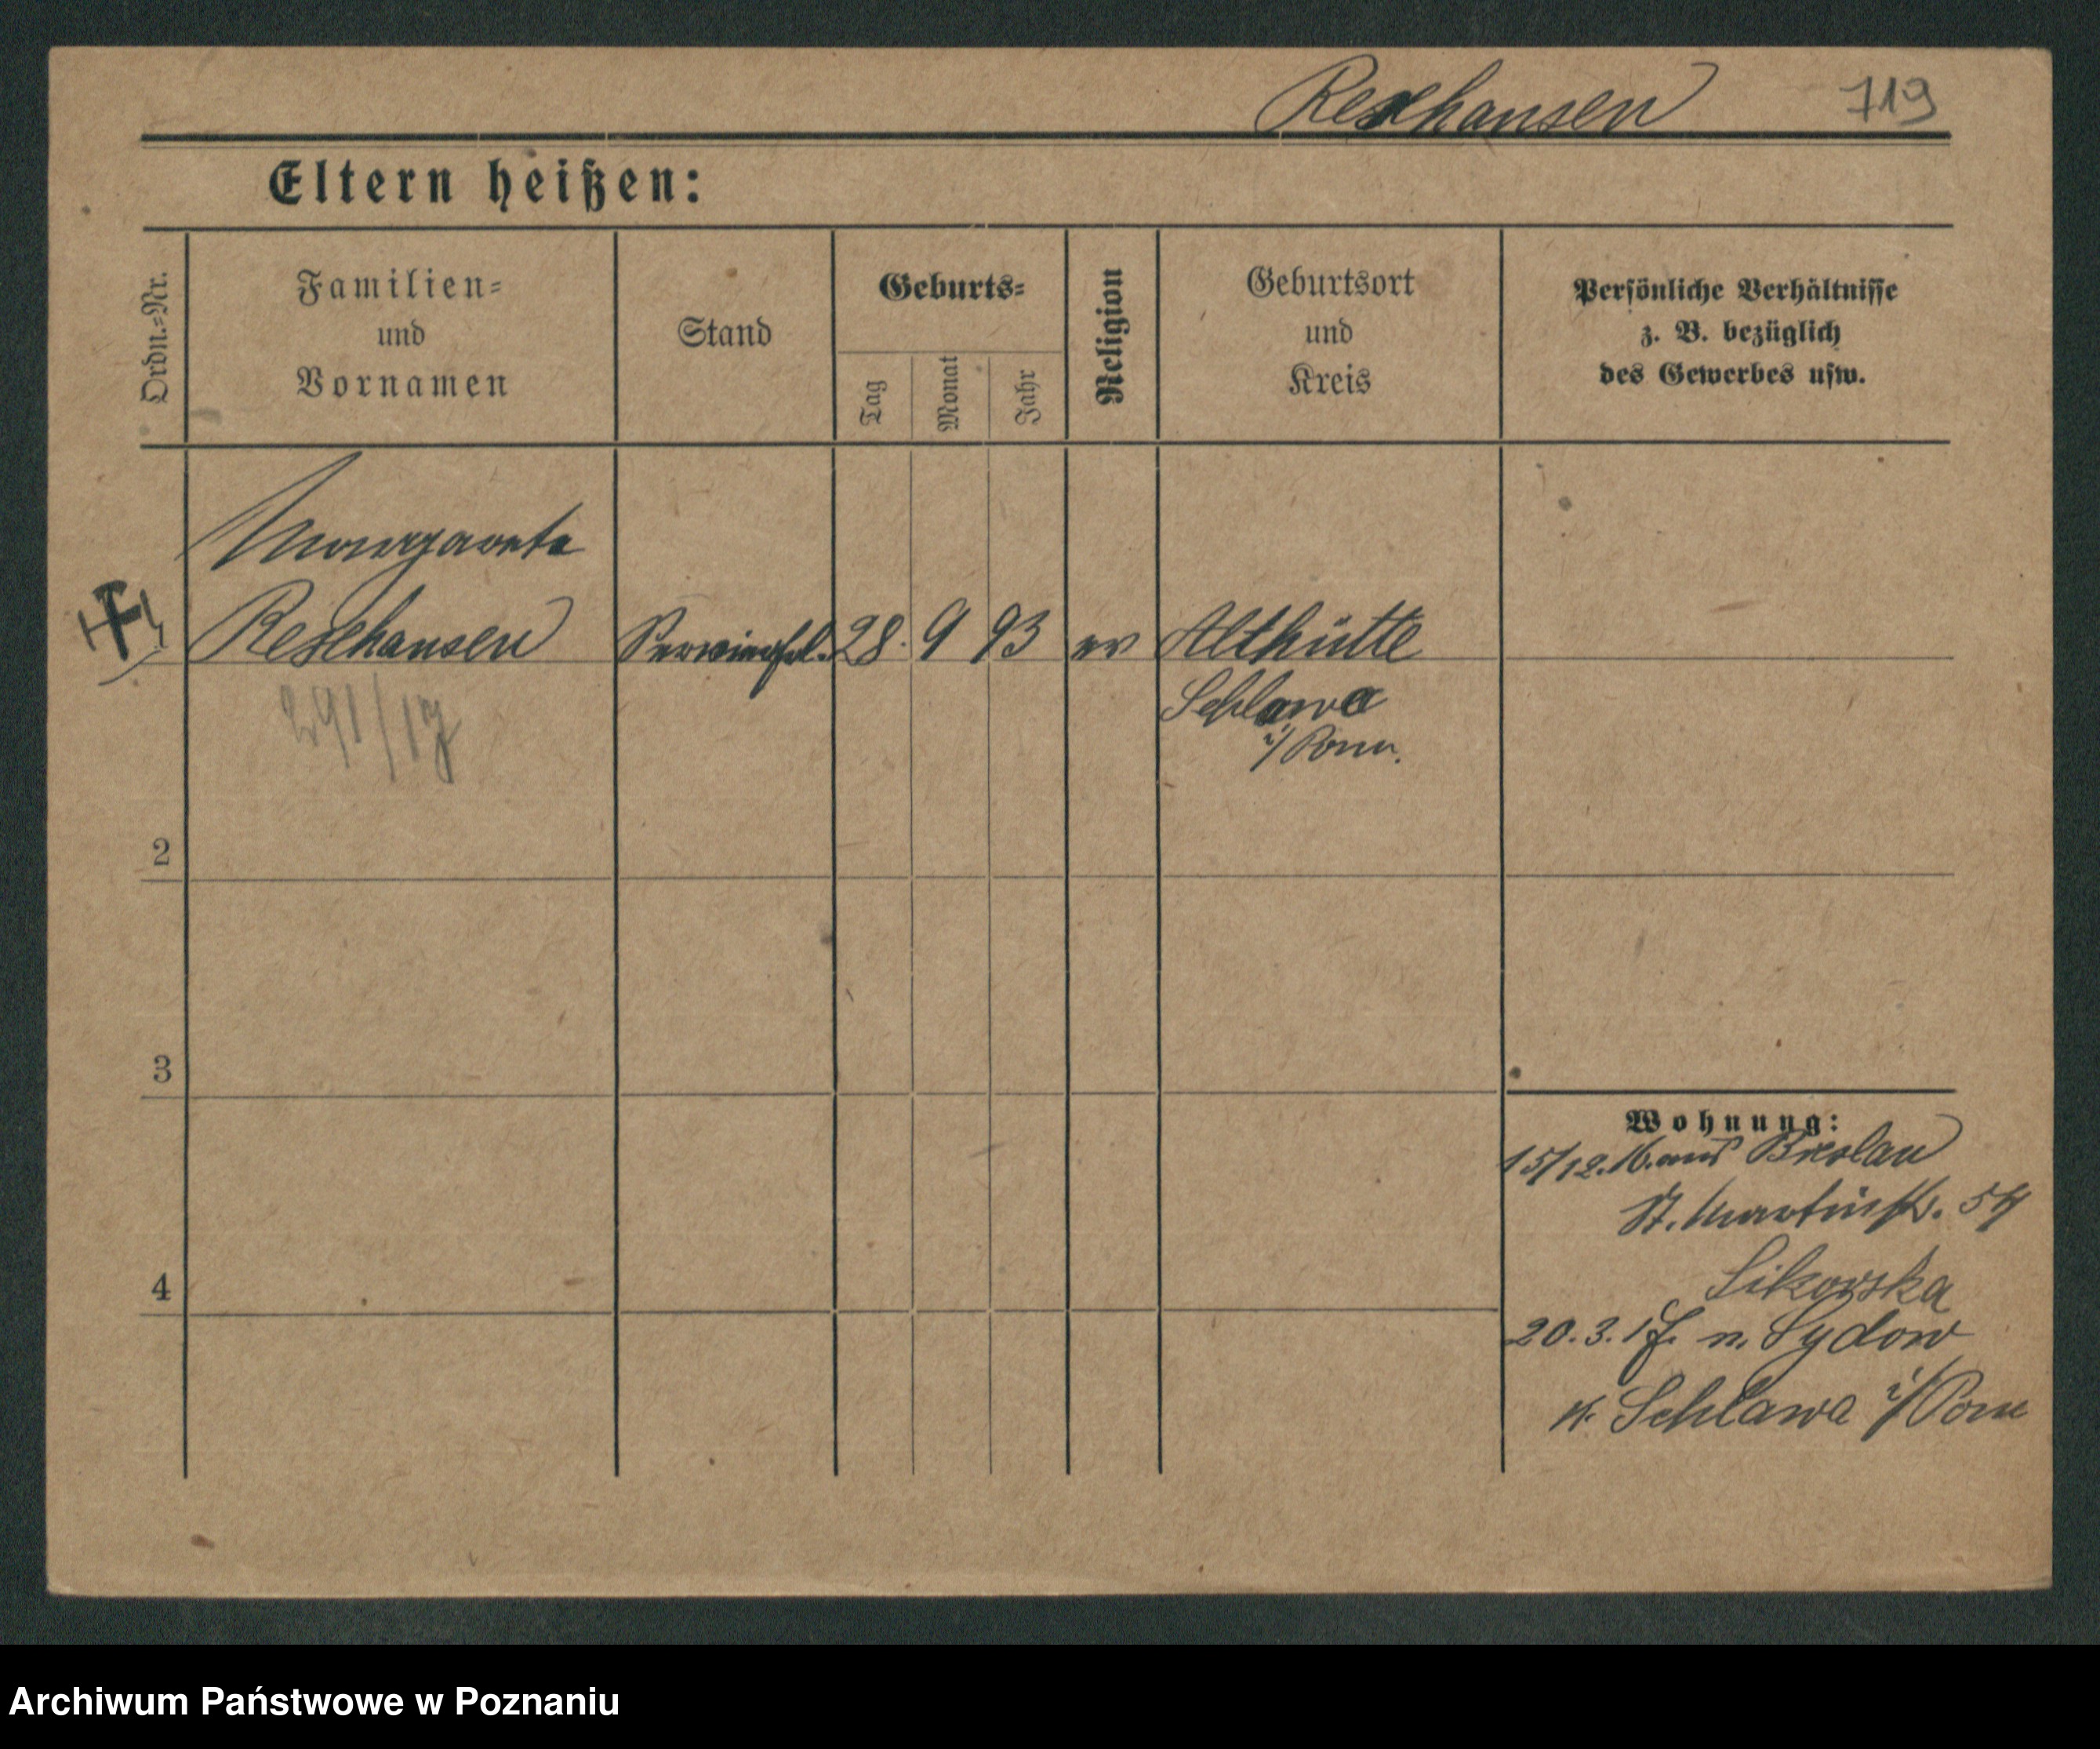 Rexhausen 719
Eltern heißen:
Ordn.-Nr.
Familien-
und
Vornamen
Stand
Geburts-
Tag
Monat
Jahr
Religion
Geburtsort
und
Kreis
Persönliche Verhältnisse
z. B. bezüglich
des Gewerbes usw.
Margarete
Rexhausen Servierfrl. 28. 9 93 ev Althütte
Schlawe
i/Pom.
291/17
2
3
4
Wohnung:
15/12. 16. aus Breslau
St. Martinstr. 54
Sikorska
20.3.17. n. Sydow
K. Schlawe i/Pom